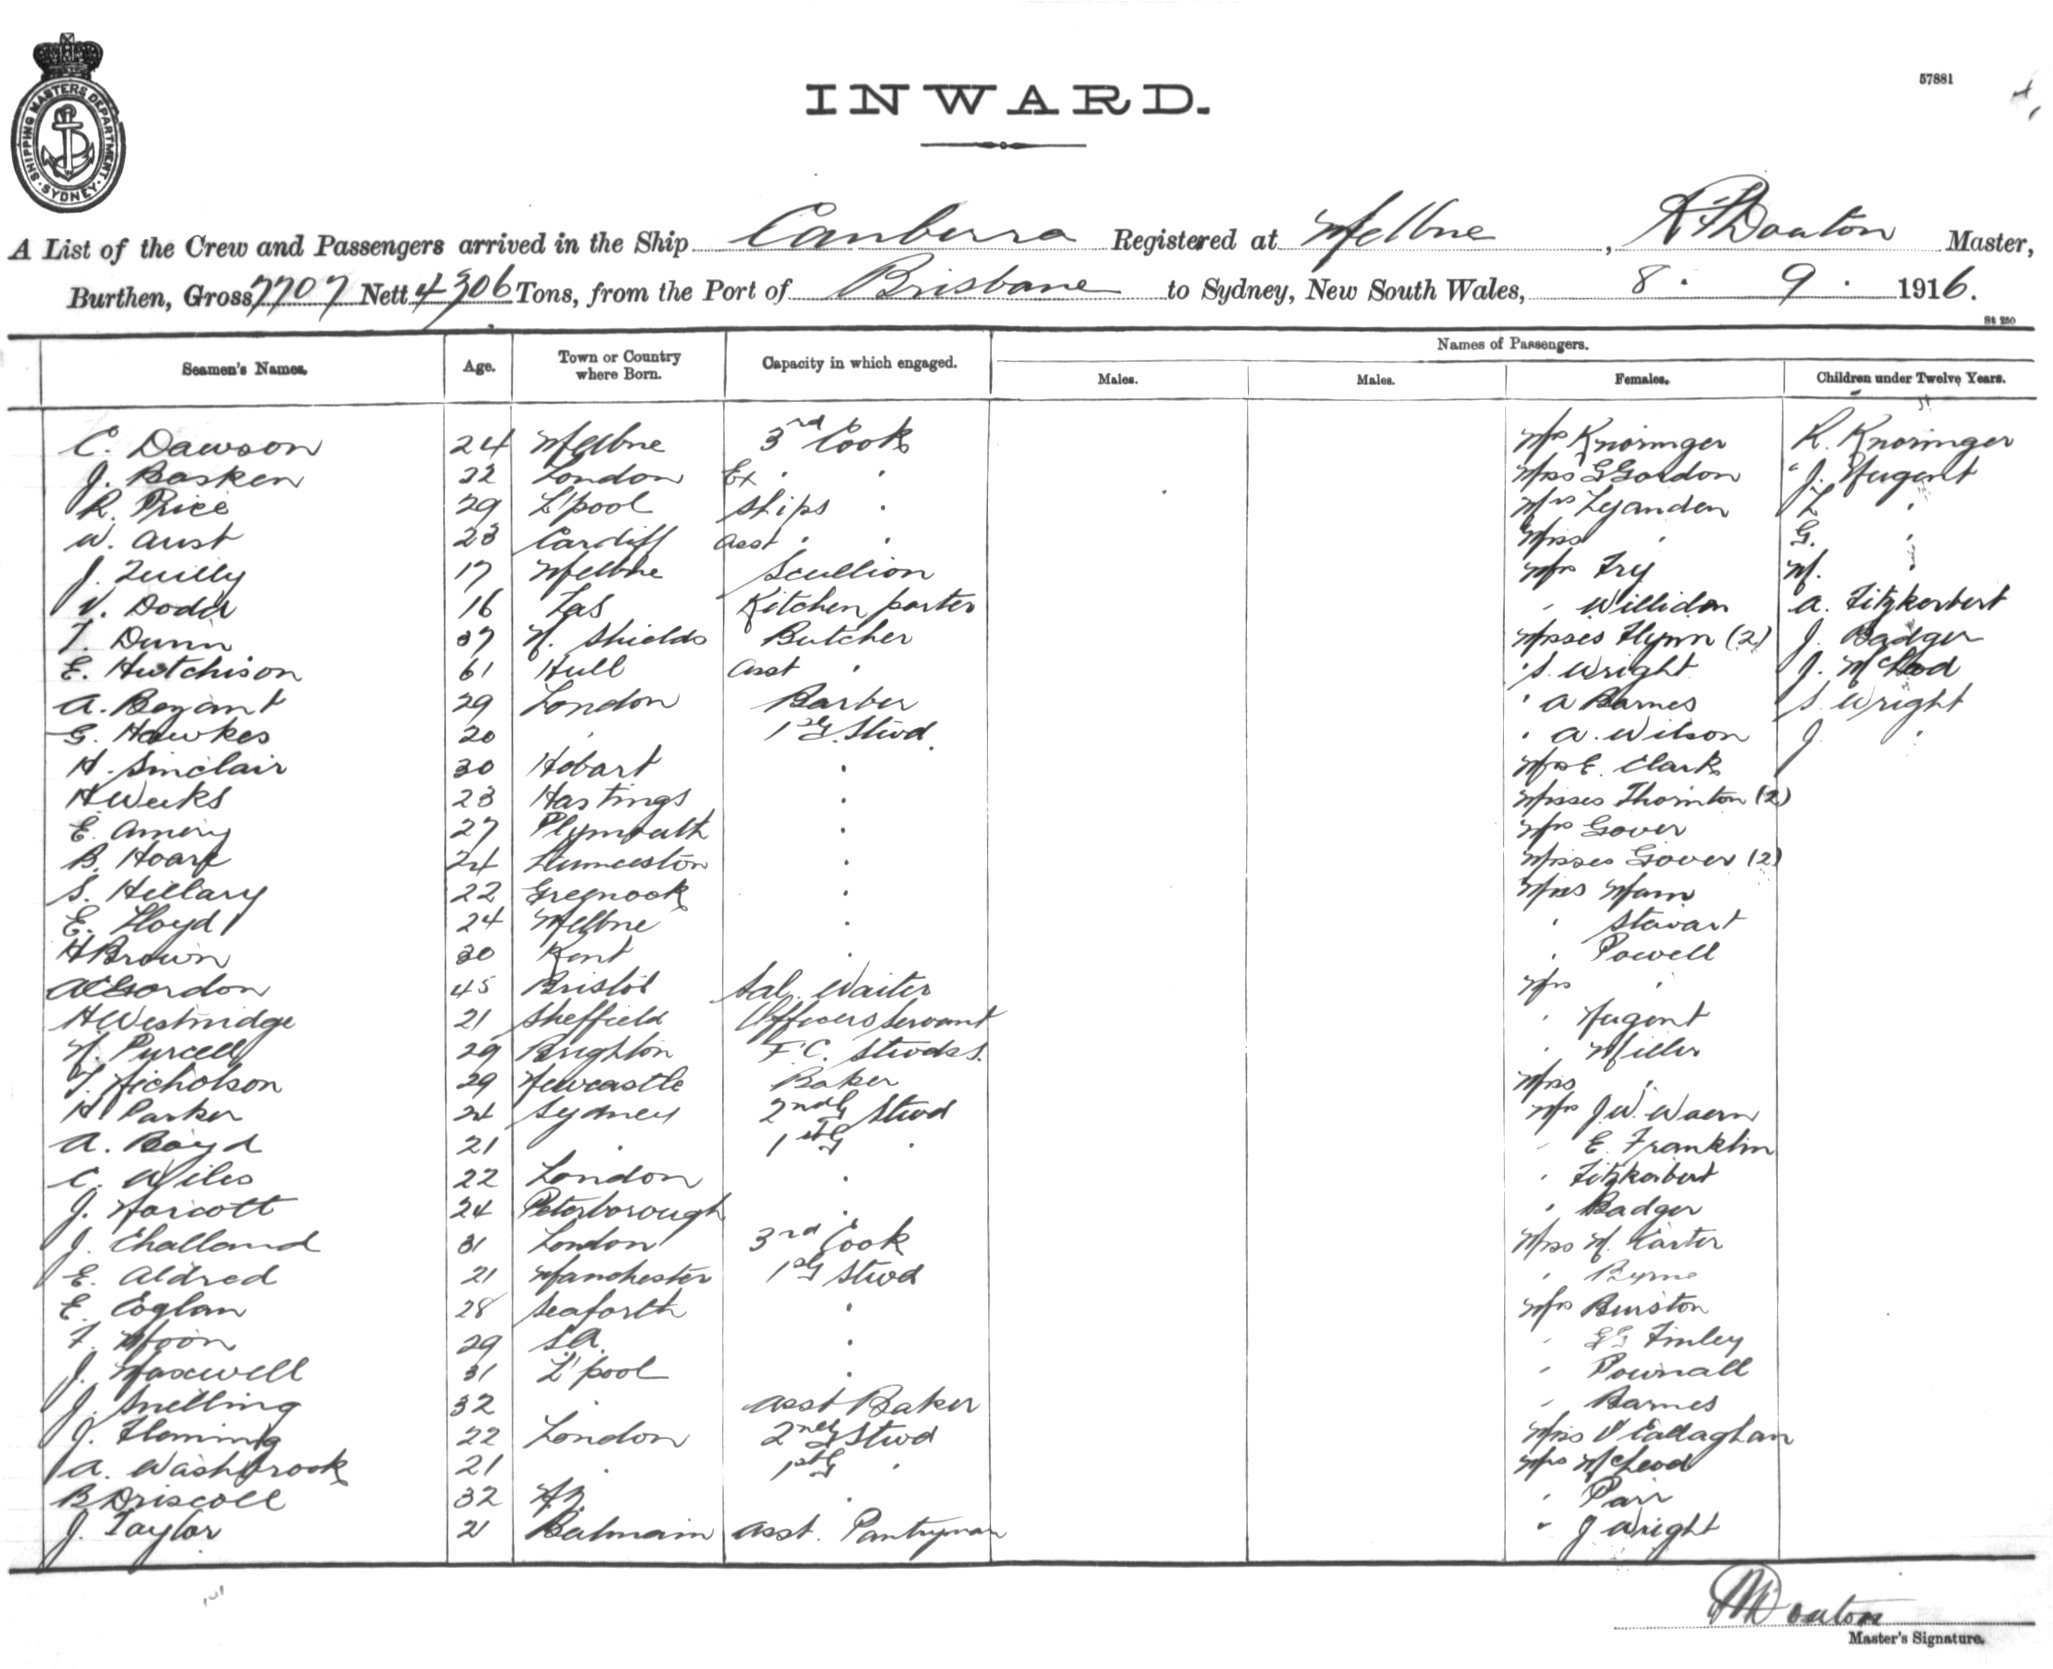 SHIPPING MASTERS DEPARTMENT · SYDNEY ·
INWARD.
57881
A List of the Crew and Passengers arrived in the Ship Canberra Registered at Melbne, Master,
Burthen, Gross 7707 Nett 4306 Tons, from the Port of Brisbane to Sydney, New South Wales, 8 . 9 . 1916.
St 250
Seamen's Names. Age. Town or Country where Born. Capacity in which engaged. Names of Passengers.
Males. Males. Females. Children under Twelve Years.
C. Dawson 24 Melbne 3rd Cook Mrs Knoringer R. Knoringer
J. Basken 32 London Ex " " Miss G Gordon " J. Nugent
R. Price 29 L'pool Ships " Mrs Lyanden L "
W. Aust 23 Cardiff Asst " " Miss " G. "
J. Tuilly 17 Melbne Scullion Mrs Fry M. "
V. Dodd 16 Tas Kitchen porter " Willidon A. Fitzkerbert
T. Dunn 37 N. Shields Butcher Misses Flynn (2) J. Badger
E. Hutchison 61 Hull Asst " " S. Wright J. McLeod
A. Bryant 29 London Barber " A Barnes S. Wright
G. Hawkes 20 " 1st G. Stwd. " A. Wilson J "
H. Sinclair 30 Hobart " Mrs E. Clark
H Weeks 23 Hastings " Misses Thornton (2)
E. Amery 27 Plymouth " Mrs Gover
B. Hoare 24 Launceston " Misses Gover (2)
S. Hillary 22 Greenock " Miss Mam
E. Lloyd 24 Melbne " " Stewart
H Brown 30 Kent " " Powell
A Gordon 45 Bristol Sal. Waiter Mrs "
H Westnidge 21 Sheffield Officers Servant " Nugent
N. Purcell 29 Brighton F.C. Stwdss. " Miller
T. Nicholson 29 Newcastle Baker Miss "
H Parker 24 Sydney 2nd G Stwd Mrs J.W. Waern
A. Boyd 21 " 1st G " " E. Franklin
C. Wiles 22 London " " Fitzkerbert
J. Narcott 24 Peterborough " " Badger
J. Challand 31 London 3rd Cook Miss M. Carter
E. Aldred 21 Manchester 1st G Stwd " Byrne
E. Coglan 28 Seaforth " Mrs Burston
F. Moon 29 S.A. " " Finley
J. Maxwell 31 L'pool " " Pownall
J. Snelling 32 " Asst Baker " Barnes
J. Fleming 22 London 2nd G Stwd Miss O'Callaghan
A. Washbrook 21 " 1st G " Mrs McLeod
B Driscoll 32 N.Z. " " Parr
J. Taylor 21 Balmain Asst. Pantryman " J Wright
Master's Signature.